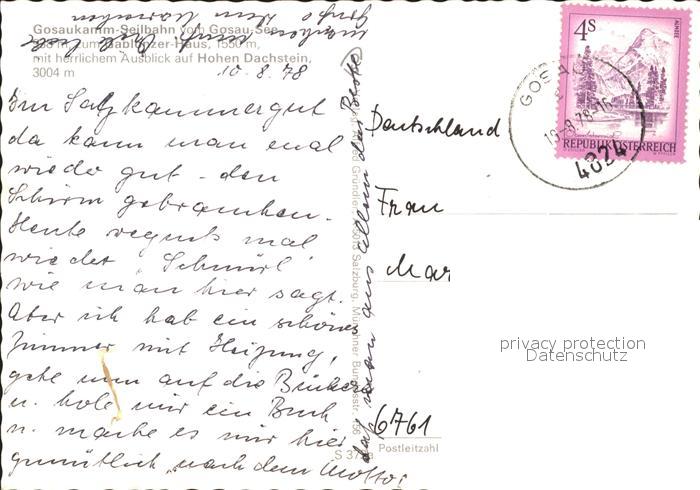 Gosaukamm-Seilbahn vom Gosau-See
zum Gablonzer-Haus, 1550 m,
mit herrlichem Ausblick auf Hohen Dachstein,
3004 m
10.8.78
Im Salzkammergut
da kann man mal
wieder gut – den
Schirm gebrauchen.
Heute regnets mal
wieder "Schnürl"
wie man hier sagt.
Aber ich hab ein schönes
Zimmer mit Heizung,
gehe nun auf die Bücherei
u. hole mir ein Buch
u. mache es mir hier
gemütlich, nach dem Motto:
das man aus allem das Beste
machen
Deutschland
Frau
Mar
6761
Postleitzahl
S 37
Salzburg, Münchner Bundesstr.
4S
ALMSEE
REPUBLIK ÖSTERREICH
GOSAU
4824
privacy protection
Datenschutz